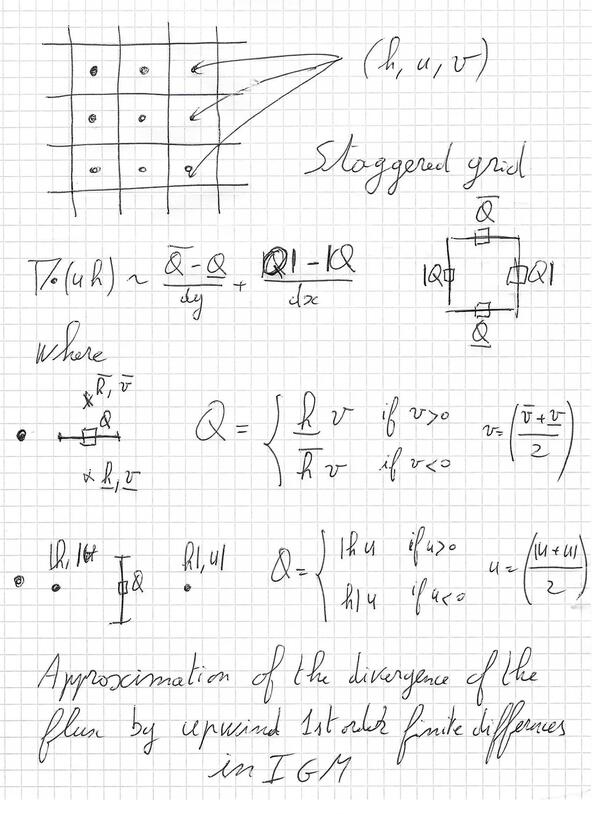 (h, u, v)
Staggered grid
Q̅
∇·(u h) ~ (Q̅ - Q̲)/dy + (Q| - |Q)/dx
|Q Q|
Q̲
where
h̅, v̅
Q
h̲, v̲
Q = { h̲ v if v>0
h̅ v if v<0
v = ((v̅ + v̲)/2)
|h, |u
Q
h|, u|
Q = { |h u if u>0
h| u if u<0
u = ((|u + u|)/2)
Approximation of the divergence of the
flux by upwind 1st order finite differences
in IGM